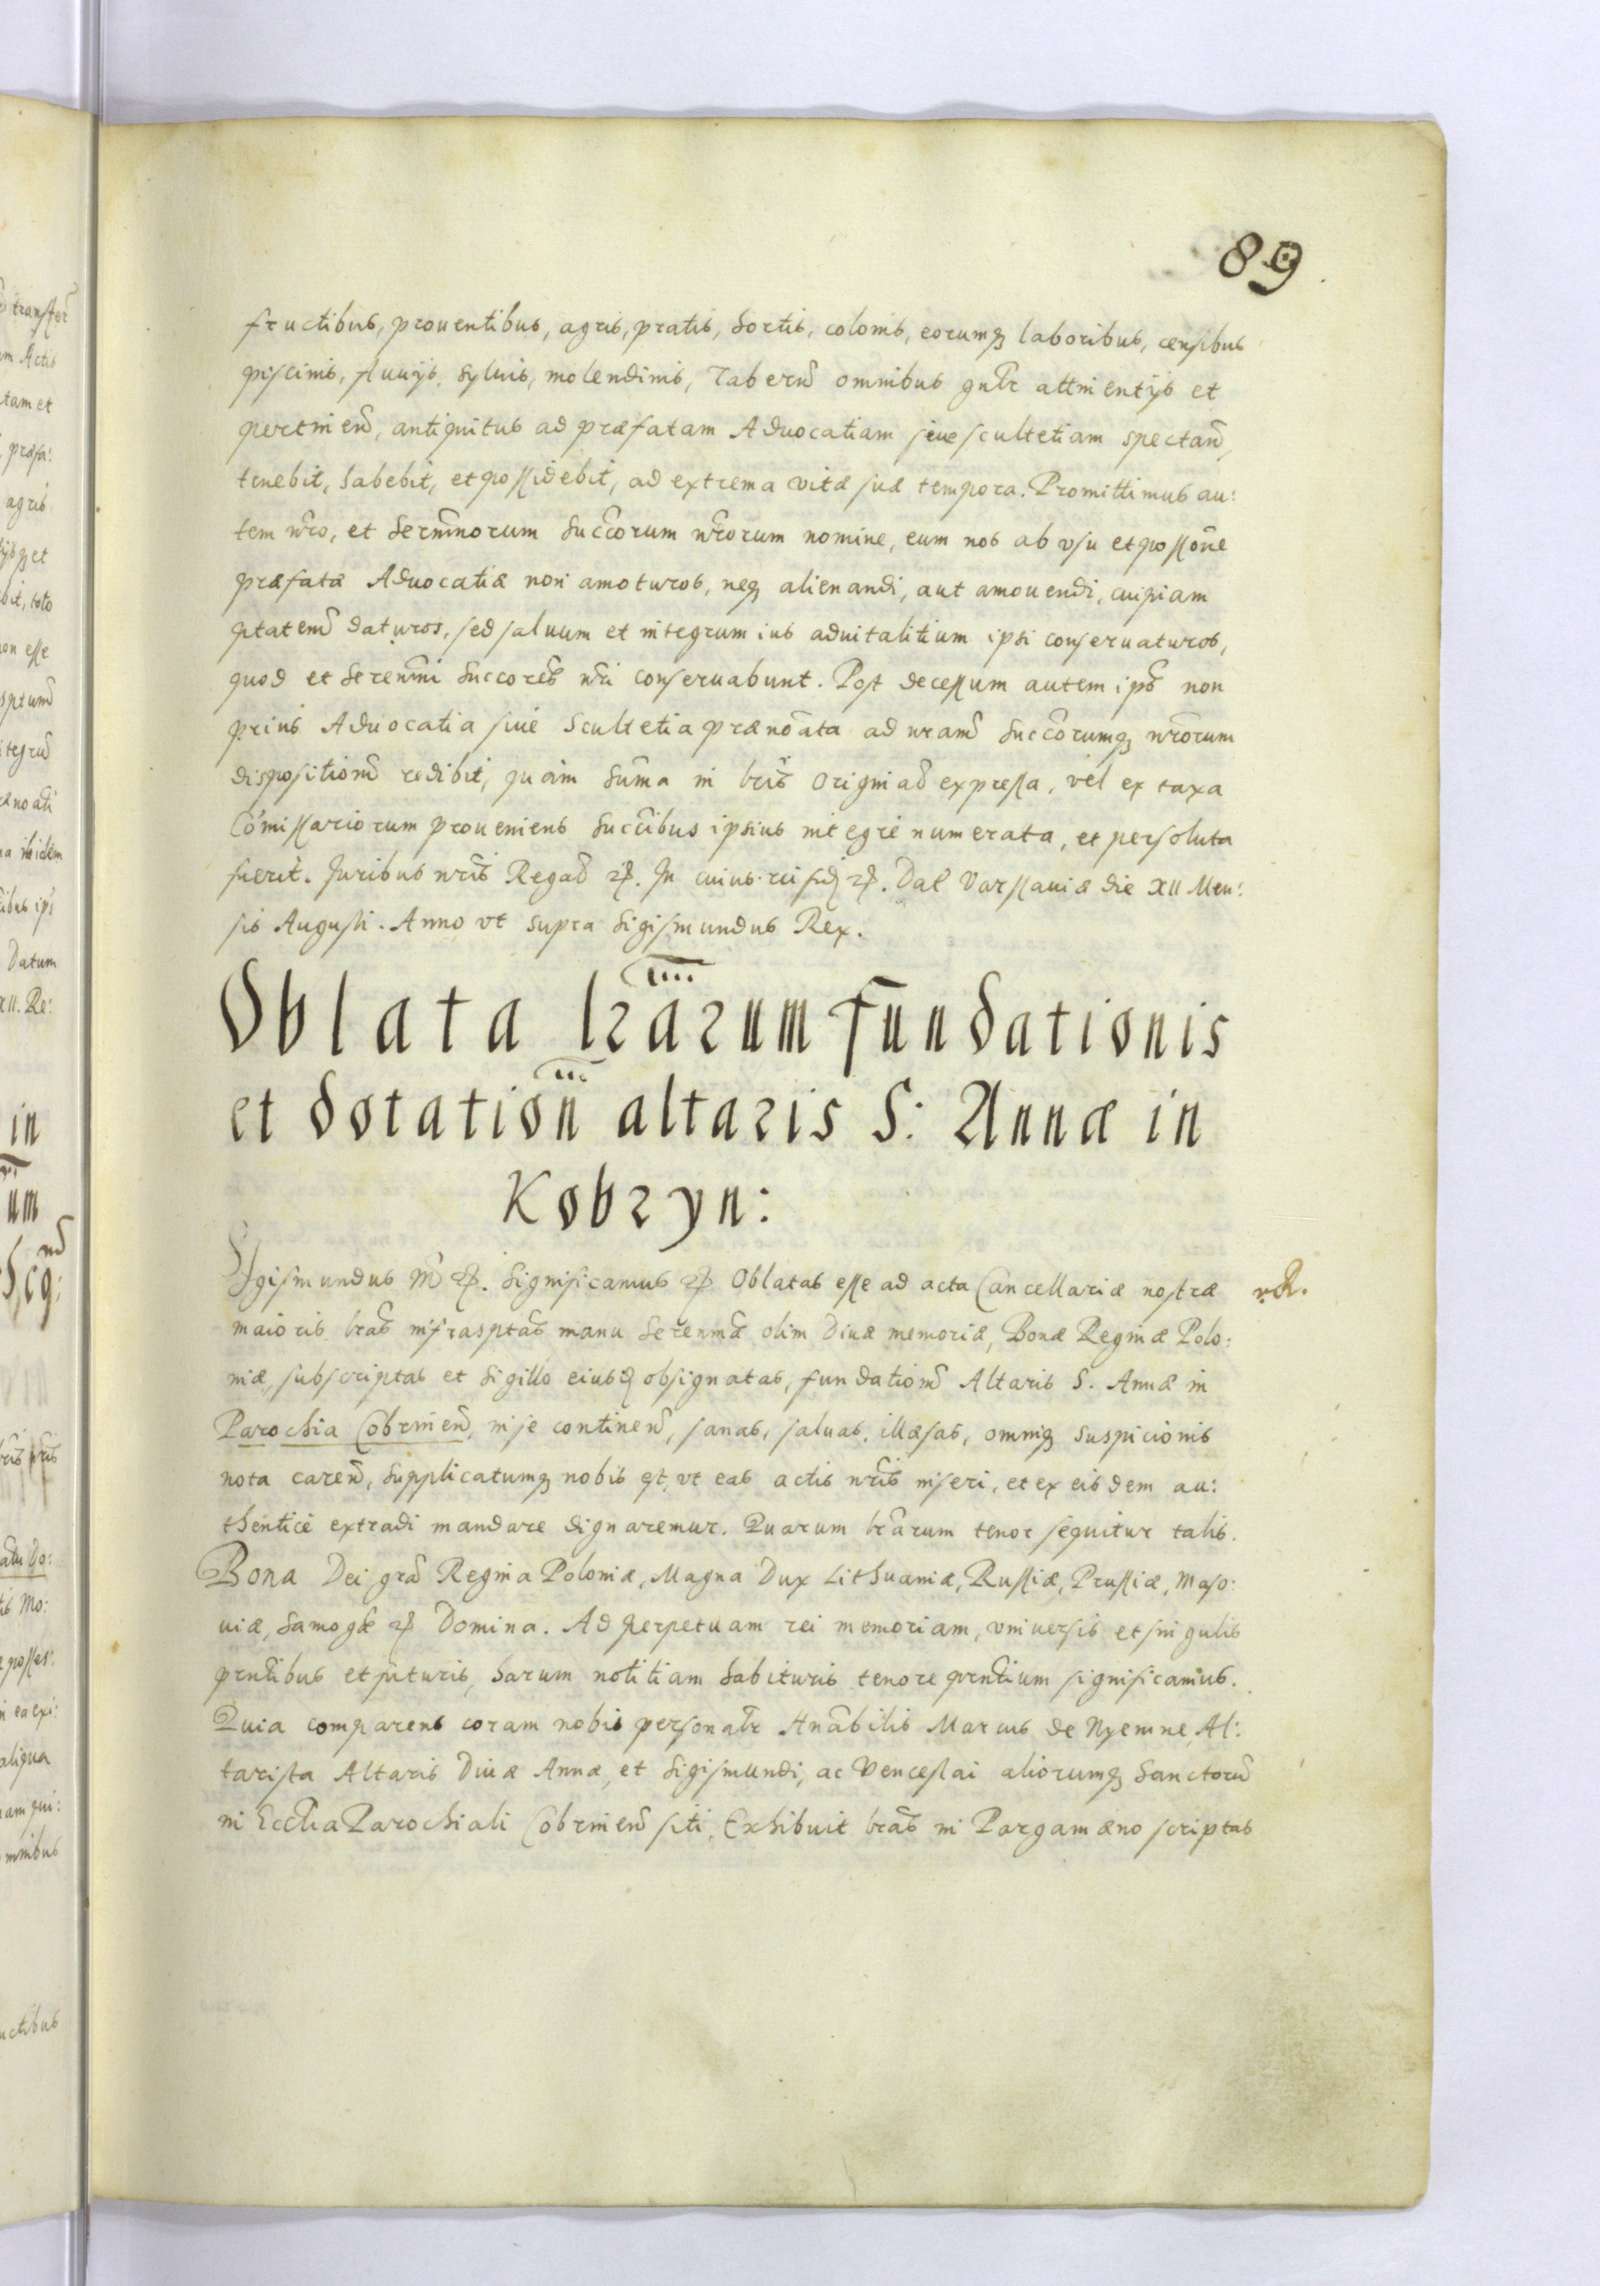 89
fructibus, prouentibus, agris, pratis, hortis, colonis, eorumq laboribus, censibus
piscinis, fluuijs, syluis, molendinis, Tabern̄ omnibus gnlr attinentijs et
pertinen̄, antiquitus ad præfatam Aduocatiam siue scultetiam spectan̄,
tenebit, habebit, et possidebit, ad extrema vitæ suæ tempora. Promittimus au:
tem nr̄o, et Sermnorum Succorum nr̄orum nomine, eum nos ab vsu et possone
præfatæ Aduocatiæ non amoturos, neq alienandi, aut amouendi, cuipiam
ptatem daturos, sed saluum et integrum ius aduitalitium ipsi conseruaturos,
quod et Serenmi Succores nr̄i conseruabunt. Post decessum autem ips non
prius Aduocatia siue Scultetia prænoata ad nram Succorumq nrorum
dispositionē redibit, quam Suma in lris Originaʟ expressa, vel ex taxa
Comissariorum proueniens Succibus ipsius integre numerata, et persoluta
fuerit. Juribus nris Regaʟ etc. In cuius rei fid etc. Dat Varssauiæ die XII Men:
sis Augusti. Anno vt supra Sigismundus Rex.
Oblata lrarum fundationis
et dotation altaris S: Annæ in
Kobryn:
Sigismundus 3 etc. Significamus etc Oblatas esse ad acta Cancellariæ nostræ
maioris lras infrasptas manu Serenmæ olim Diuæ memoriæ, Bonæ Reginæ Polo:
niæ, subscriptas et Sigillo eiusd obsignatas, fundationē Altaris S. Annæ in
Parochia Cobrinen̄, in se continen̄, sanas, saluas, illæsas, omniq Suspicionis
nota caren̄, Supplicatumq nobis est, vt eas actis nris inseri, et ex eisdem au:
thentice extradi mandare dignaremur. Quarum lrarum tenor sequitur talis.
Bona Dei gra Regina Poloniæ, Magna Dux Lithuaniæ, Russiæ, Prussiæ, Maso:
uiæ, Samogæ etc Domina. Ad perpetuam rei memoriam, vniuersis et singulis
prntibus et futuris, harum notitiam habituris tenore prntium significamus.
Quia comparens coram nobis personalr Hnabilis Marcus de Nyemne, Al:
tarista Altaris Diuæ Annæ, et Sigismundi, ac Venceslai aliorumq Sanctorū
in Ecclia Parochiali Cobrinen̄ siti, Exhibuit lras in Pargamæno scriptas